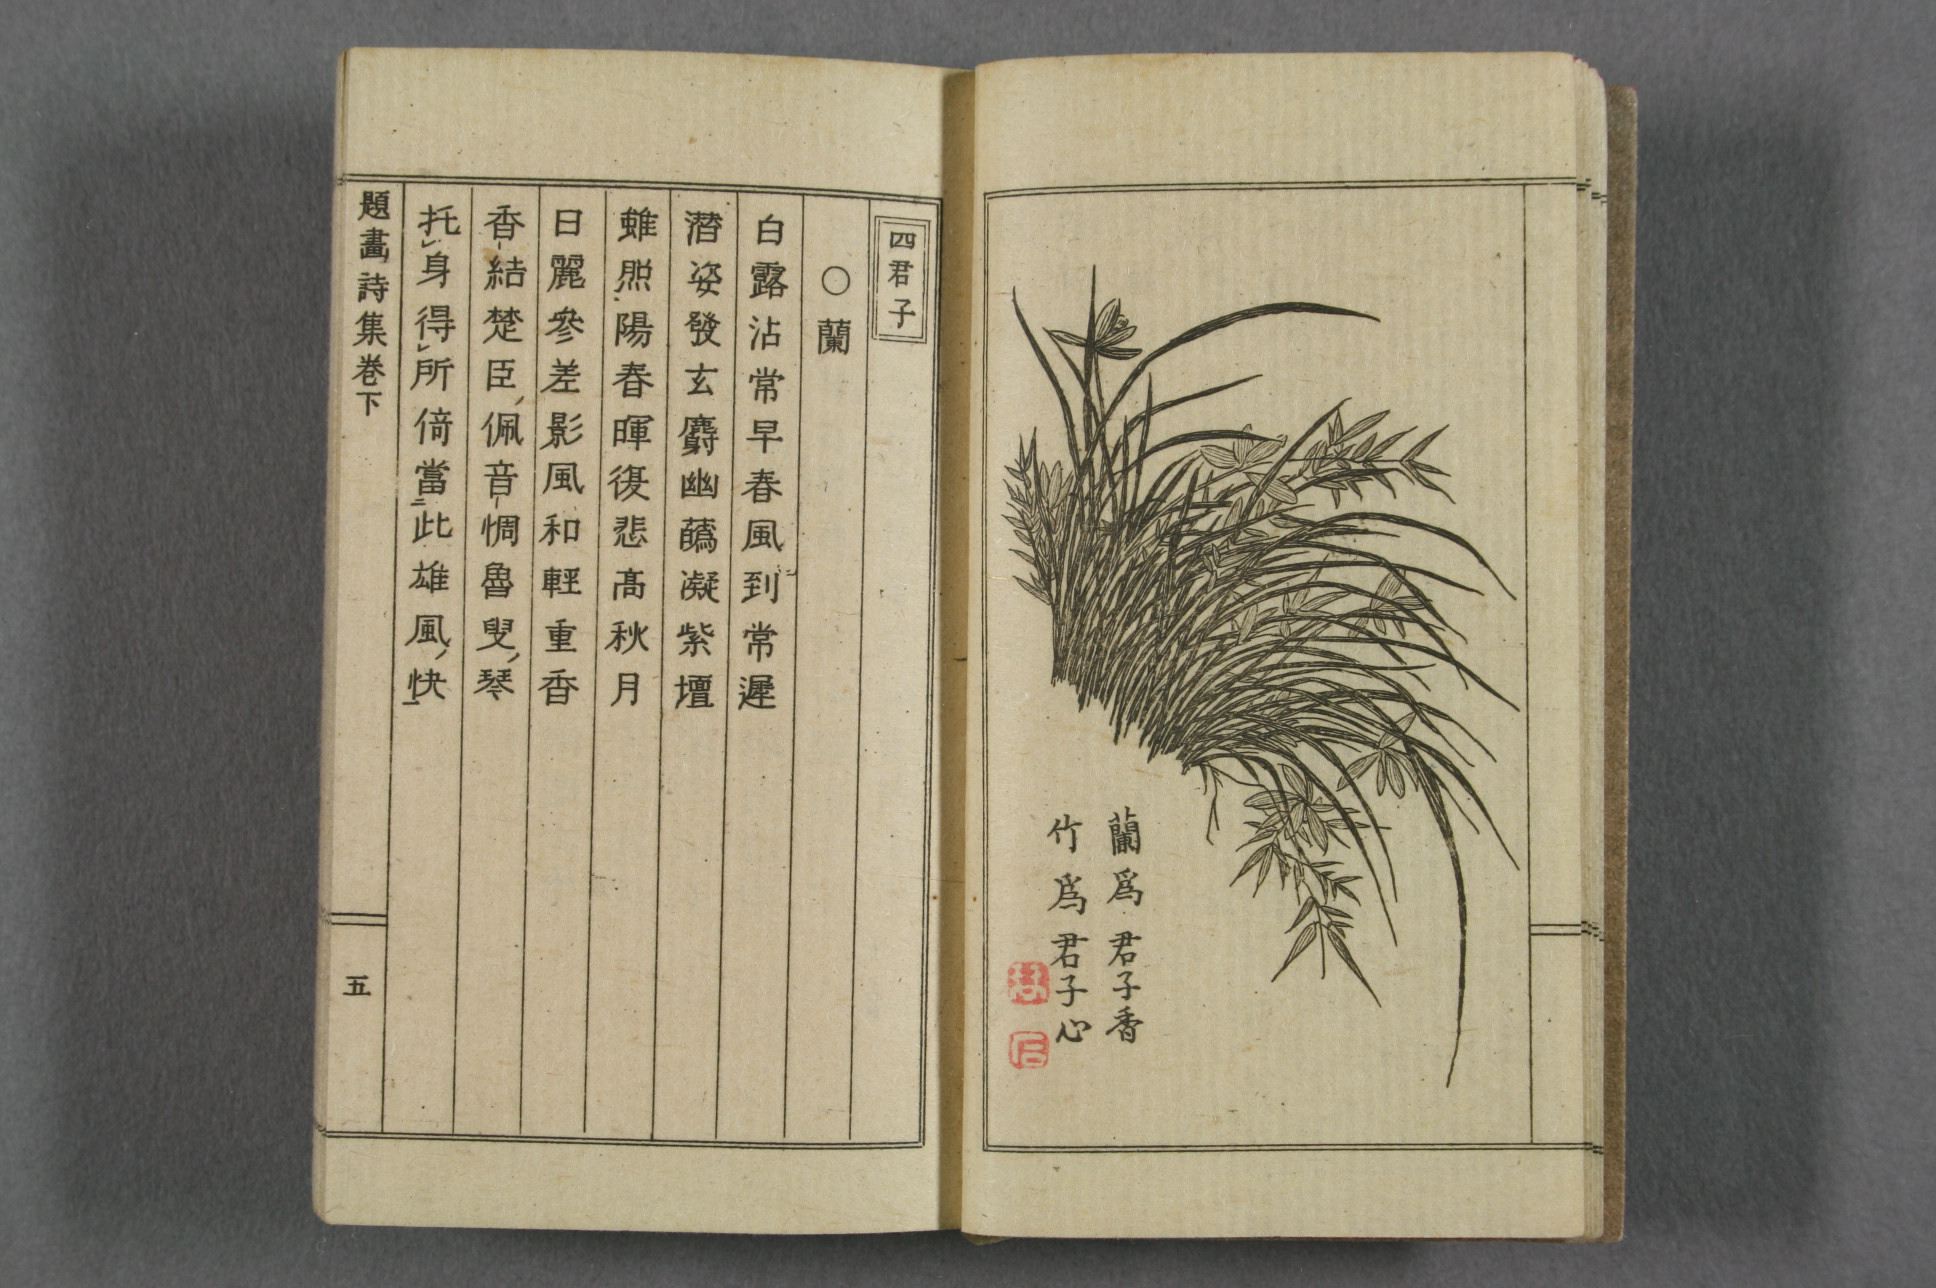 蘭爲君子香
竹爲君子心
四君子
○蘭
白露沾常早春風到常遲
潜姿發玄麝幽蘤凝紫壇
雖照陽春暉復悲高秋月
日麗參差影風和輕重香
香結楚臣佩音惆魯叟琴
托身得所倚當此雄風快
題畫詩集卷下
五